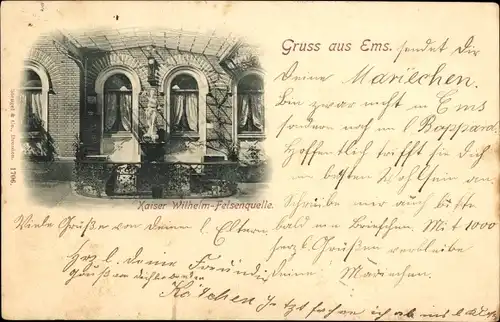 Gruss aus Ems. sendet Dir
Deine Mariechen.
Bin zwar nicht in Ems
sondern noch in l. Boppard.
Hoffentlich trifft sie Dich
im besten Wohlsein an.
Schreibe mir auch bitte
bald ein Briefchen. Mit 1000
herzl. Grüßen verbleibe
Deine Mariechen.
Kaiser Wilhelm-Felsenquelle.
Stengel & Co., Dresden. 1706.
Viele Grüße von Deinen l. Eltern.
Herzl. Deine Freundin
Käthchen
Jetzt fahre ich